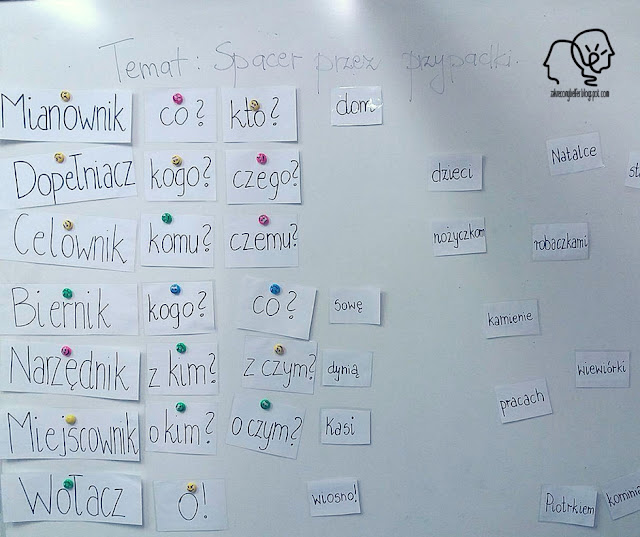 Temat: Spacer przez przypadki.
zakreconybelfer.blogspot.com
Mianownik co? kto? dom
Dopełniacz kogo? czego? dzieci Natalce
Celownik komu? czemu? nożyczkom robaczkami
Biernik kogo? co? sowę kamienie
Narzędnik z kim? z czym? dynią wiewiórki
Miejscownik o kim? o czym? kasi pracach
Wołacz O! wiosno! Piotrkiem